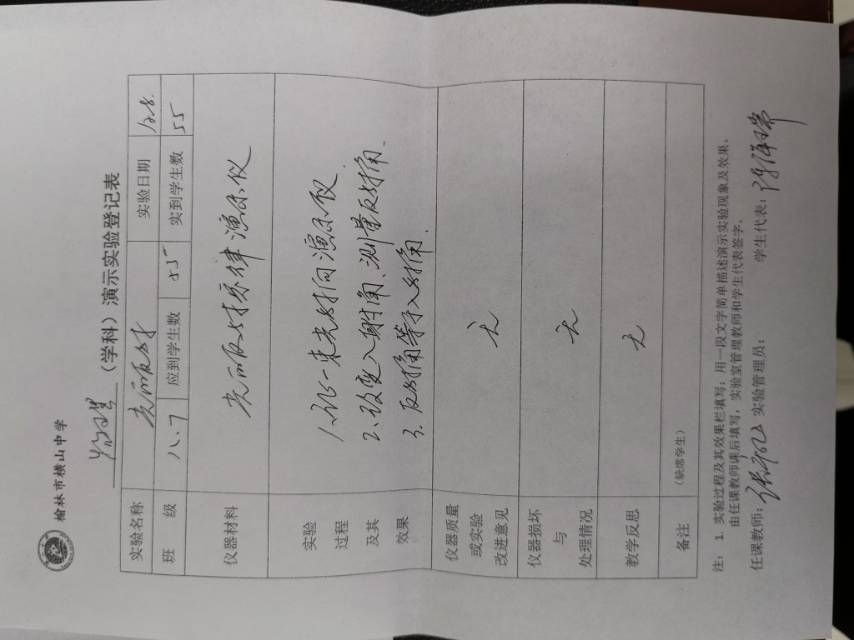 榆林市横山中学
物理（学科）演示实验登记表
实验名称 光的反射 实验日期 12.8.
班 级 八.7 应到学生数 55 实到学生数 55
仪器材料 光的反射规律演示仪
实验
过程
及其
效果
1.让一束光射向演示仪
2.改变入射角.测量反射角.
3.反射角等于入射角.
仪器质量
或实验
改进意见
无
仪器损坏
与
处理情况
无
教学反思 无
备注 （缺席学生）
注：1. 实验过程及其效果栏填写：用一段文字简单描述演示实验现象及效果。
由任课教师课后填写，实验室管理教师和学生代表签字。
任课教师： 实验管理员： 学生代表：